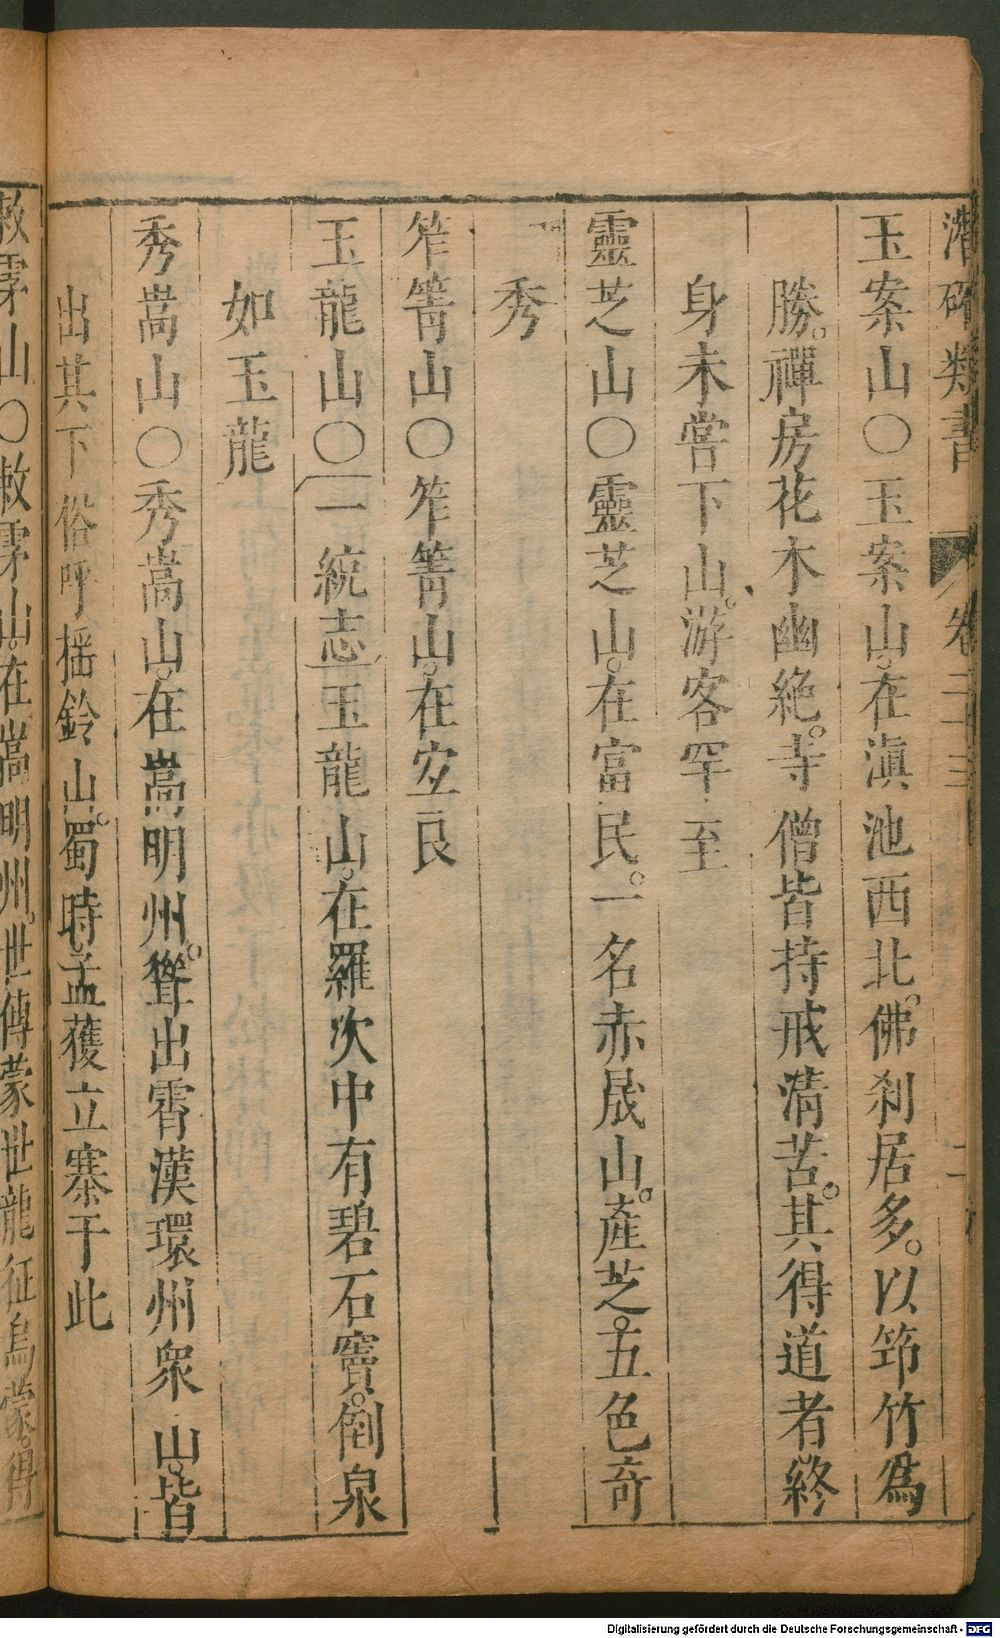 潛確類書 卷二十三 二
玉案山〇玉案山。在滇池西北。佛刹居多。以筇竹爲
勝。禪房花木幽絶。寺僧皆持戒清苦。其得道者終
身未嘗下山。游客罕至
靈芝山〇靈芝山。在富民。一名赤晟山。產芝。五色奇
秀
笮箐山〇笮箐山。在安良
玉龍山〇一統志玉龍山。在羅次中有碧石竇。倒泉
如玉龍
秀嵩山〇秀嵩山。在嵩明州。聳出霄漢環州衆山。皆
出其下俗呼揺鈴山。蜀時。孟獲立寨于此
山〇山。在嵩明州。世傳蒙世龍征烏蒙。得
Digitalisierung gefördert durch die Deutsche Forschungsgemeinschaft - DFG